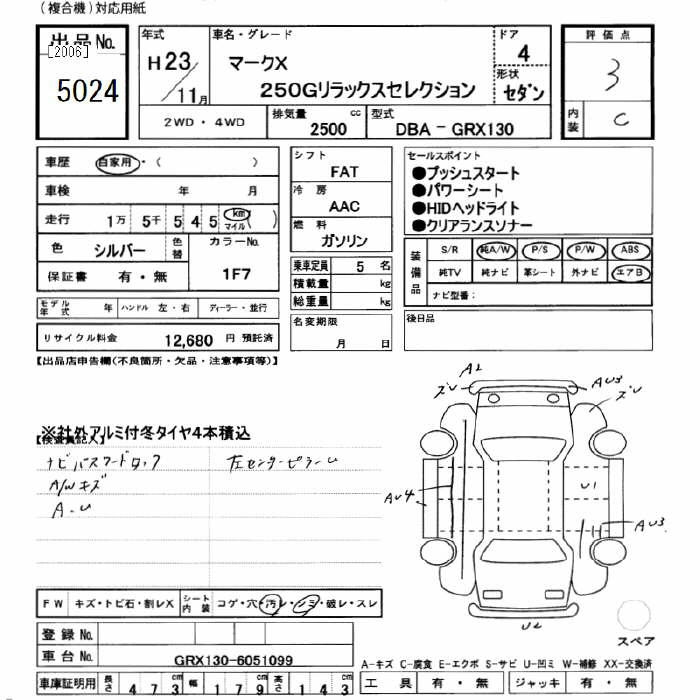 (複合機)対応用紙
出品No. 年式 車名・グレード ドア 評価点
[2006] H23/11月 マークX 4 3
5024 250Gリラックスセレクション 形状 セダン
2WD・4WD 排気量 2500 cc 型式 DBA-GRX130 内装 C
車歴 自家用・( )
シフト FAT
セールスポイント
●プッシュスタート
●パワーシート
●HIDヘッドライト
●クリアランスソナー
車検 年 月
冷房 AAC
走行 1万 5千 5 4 5 km マイル ( )
燃料 ガソリン
色 シルバー 色替 カラーNo. 1F7
保証書 有・無
乗車定員 5 名
積載量 kg
総重量 kg
装備品 S/R 純A/W P/S P/W ABS
純TV 純ナビ 革シート 外ナビ エアB
ナビ型番:
モデル年式 年 ハンドル 左・右 ディーラー・並行
名変期限 月 日
後日品
リサイクル料金 12,680 円 預託済
【出品店申告欄(不良箇所・欠品・注意事項等)】
※社外アルミ付冬タイヤ4本積込
【検査員記入】
ナビパスワードロック 左センターピラーU
A/Wキズ
A-U
A2
ズU
AU3
ズU
AU4
U1
AU3
U2
スペア
FW キズ・トビ石・割レX シート内装 コゲ・穴・汚レ・シミ・破レ・スレ
登録No.
車台No. GRX130-6051099
A-キズ C-腐食 E-エクボ S-サビ U-凹ミ W-補修 XX-交換済
車庫証明用 長さ 4 7 3 幅 1 7 9 高さ 1 4 3 工具 有・無 ジャッキ 有・無